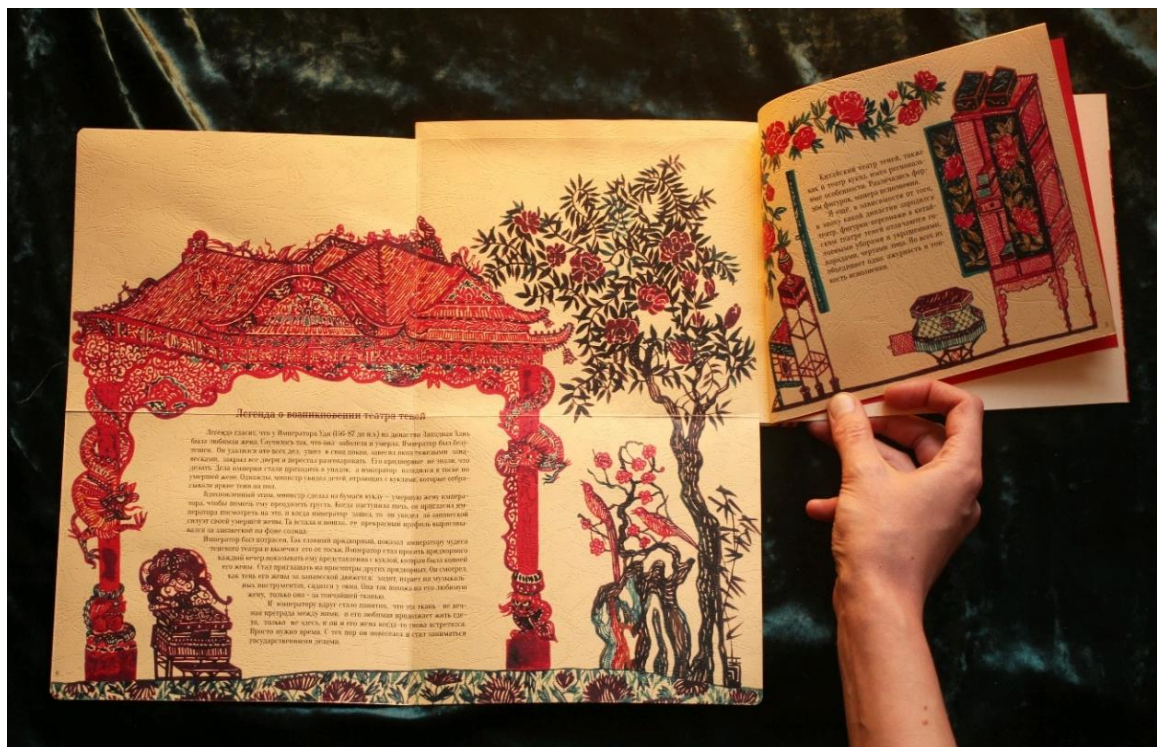 Легенда о возникновении театра теней
Легенда гласит, что у Императора Уди (156-87 до н.э.) из династии Западная Хань
была любимая жена. Случилось так, что она заболела и умерла. Император был безу-
тешен. Он удалился ото всех дел, ушел в свои покои, завесил окна тяжелыми зана-
весками, закрыл все двери и перестал разговаривать. Его придворные не знали, что
делать. Дела империи стали приходить в упадок, а император находился в тоске по
умершей жене. Однажды, министр увидел детей, играющих с куклами, которые отбра-
сывали яркие тени на пол.
Вдохновленный этим, министр сделал из бумаги куклу – умершую жену импера-
тора, чтобы помочь ему преодолеть грусть. Когда наступила ночь, он пригласил им-
ператора посмотреть на это, и когда император зашел, то он увидел за занавеской
силуэт своей умершей жены. Та встала и пошла, ее прекрасный профиль
вался за занавеской на фоне солнца.
Император был потрясен. Так главный придворный, показал императору чудеса
теневого театра и вылечил его от тоски. Император стал просить придворного
каждый вечер показывать ему представления с куклой, которая была копией
его жены. Стал приглашать на просмотры других придворных. Он смотрел,
как тень его жены за занавеской движется: ходит, играет на музыкаль-
ных инструментах, садится у окна. Она так похожа на его любимую
жену, только она – за тончайшей тканью.
И императору вдруг стало понятно, что эта ткань - не веч-
ная преграда между ними, и его любимая продолжает жить где-
то, только не здесь, и он и его жена когда-то снова встретятся.
Просто нужно время. С тех пор он повеселел и стал заниматься
государственными делами.
Китайский театр теней, также
как и театр кукол, имел региональ-
ные особенности. Различались фор-
мы фигурок, манера исполнения.
И ещё, в зависимости от того,
в эпоху какой династии зародился
театр, фигурки-персонажи в китай-
ском театре теней отличаются го-
ловными уборами и украшениями,
нарядами, чертами лица. Но всех их
объединяет одно: ажурность и тон-
кость исполнения.